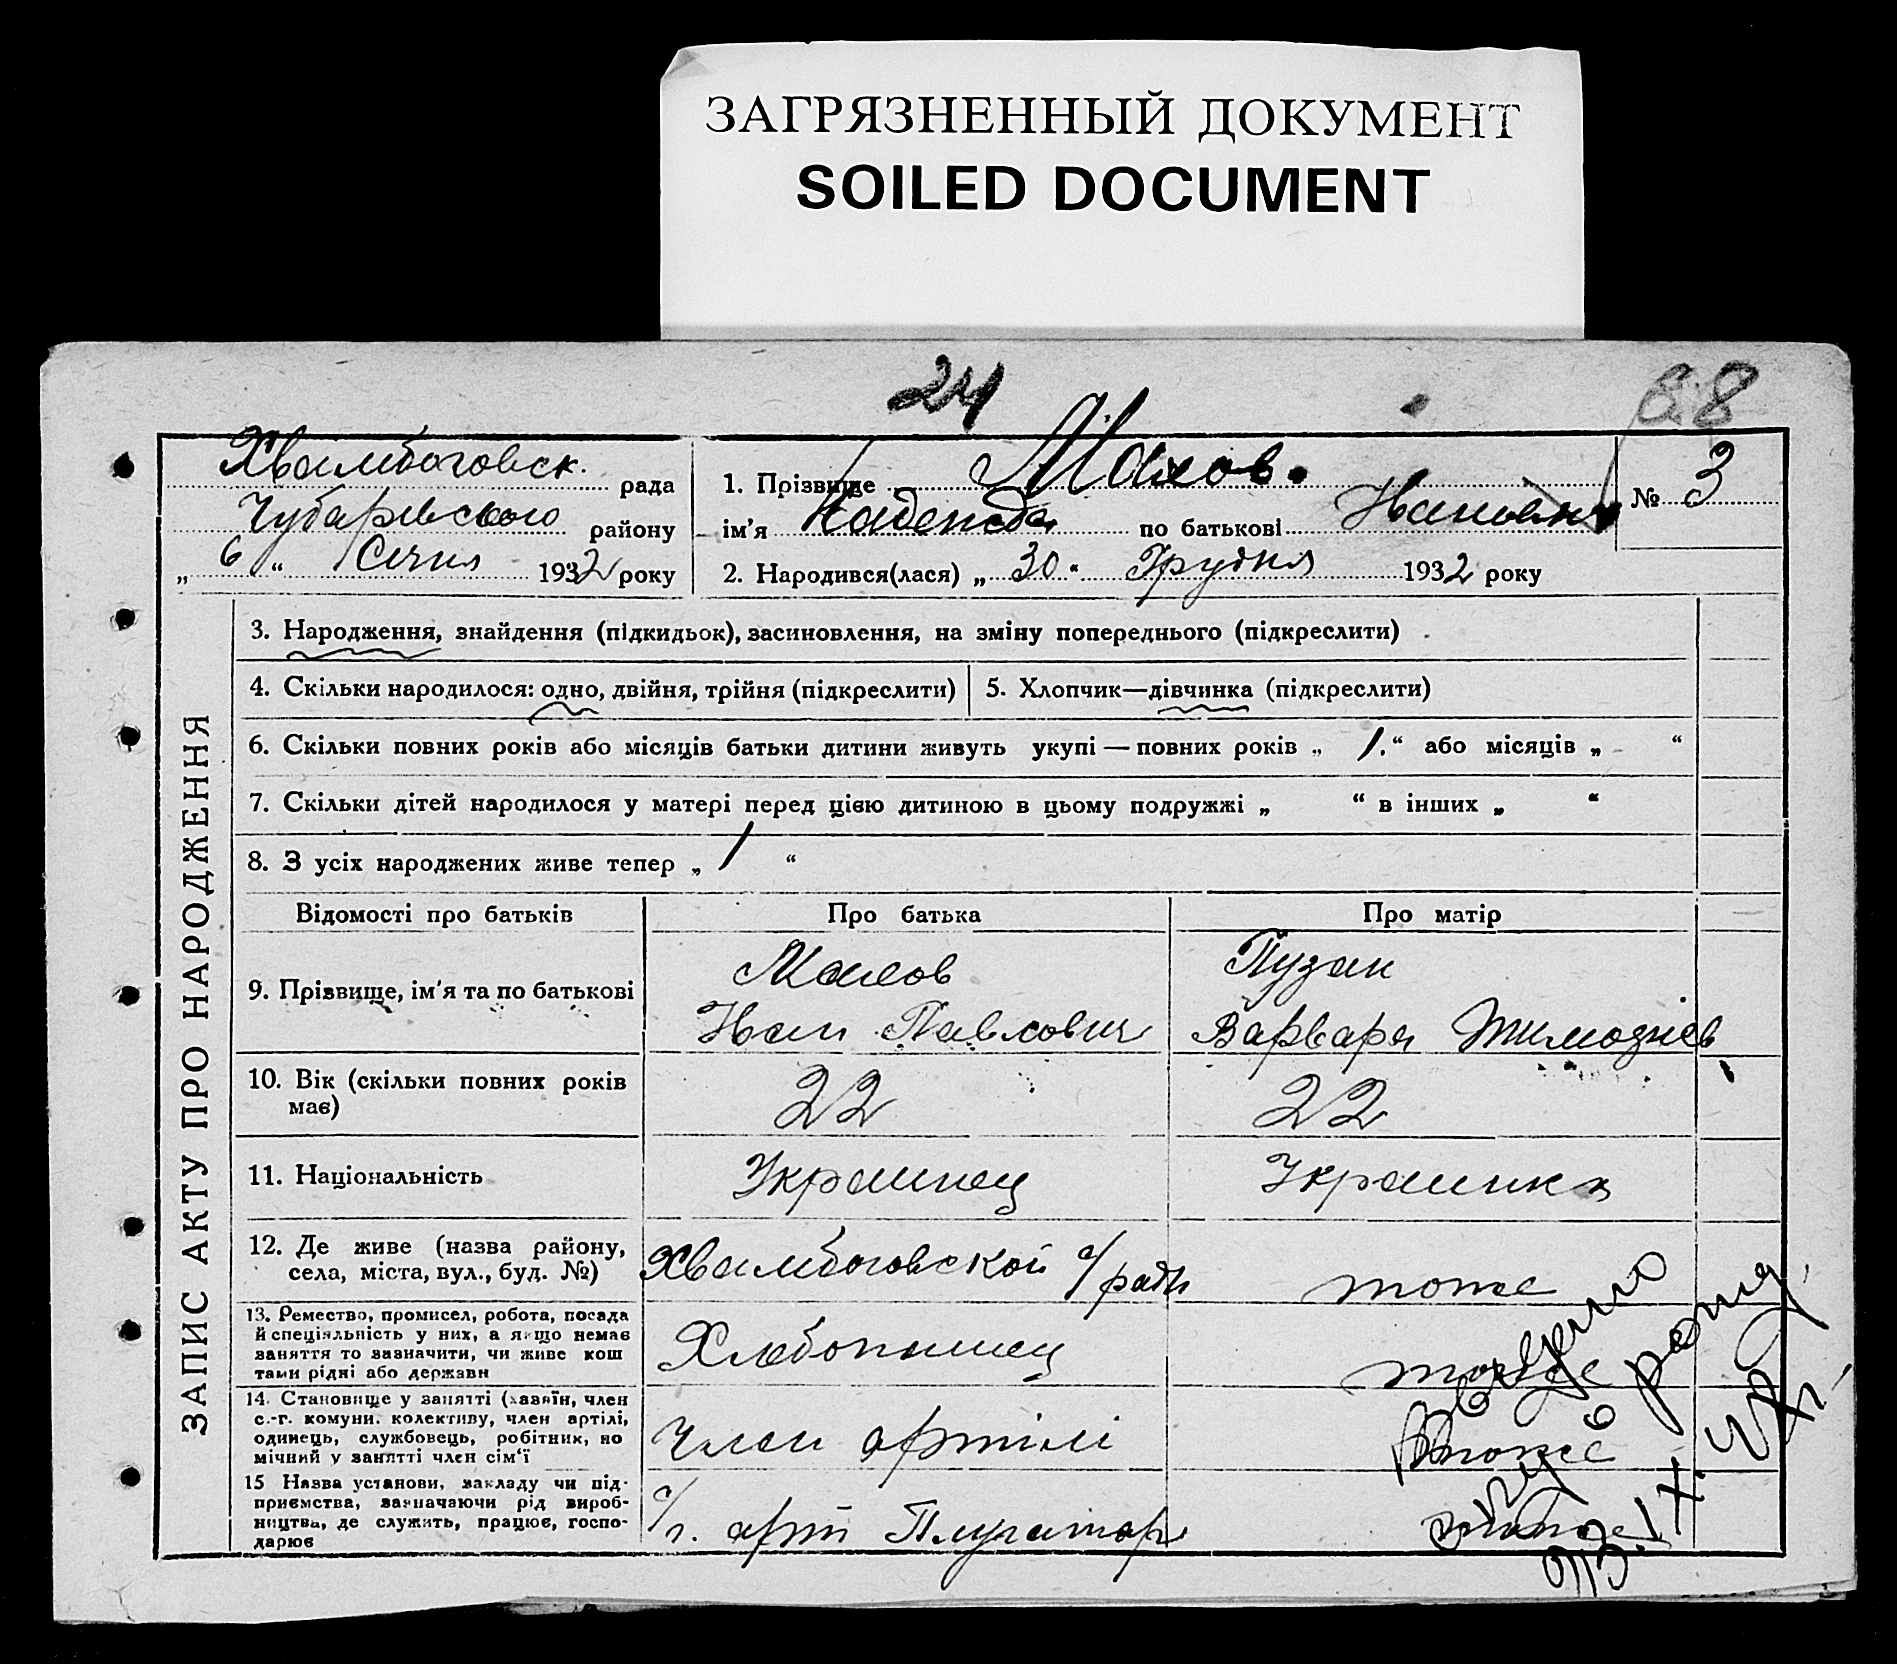 ЗАГРЯЗНЕННЫЙ ДОКУМЕНТ
SOILED DOCUMENT
24
ЗАПИС АКТУ ПРО НАРОДЖЕННЯ
рада
Чубаревського району
„ 6 “ Січня 1932 року
1. Прізвище Малов.
ім'я Надежда по батькові
№ 3
2. Народився(лася) „ 30 “ Грудня 1932 року
3. Народження, знайдення (підкидьок), засиновлення, на зміну попереднього (підкреслити)
4. Скільки народилося: одно, двійня, трійня (підкреслити)
5. Хлопчик—дівчинка (підкреслити)
6. Скільки повних років або місяців батьки дитини живуть укупі — повних років „ 1. “ або місяців „ “
7. Скільки дітей народилося у матері перед цією дитиною в цьому подружжі „ “ в інших „ “
8. З усіх народжених живе тепер „ 1 “
Відомості про батьків
Про батька
Про матір
9. Прізвище, ім'я та по батькові
Малов
Иван Павлович
Пузан
Варвара
10. Вік (скільки повних років
має)
22
22
11. Національність
Украинец
Украинка
12. Де живе (назва району,
села, міста, вул., буд. №)
с/ради
тоже
13. Ремество, промисел, робота, посада
й спеціяльність у них, а якщо немає
заняття то зазначити, чи живе кош
тами рідні або держави
Хлебопашец
тоже
14. Становище у занятті (хазяїн, член
с.-г. комуни, колективу, член артілі,
одинець, службовець, робітник, по
мічний у занятті член сім'ї
Член артілі
тоже
15 Назва установи, закладу чи під-
приємства, зазначаючи рід вироб-
ництва, де служить, працює, госпо-
дарює
с/г. арт Плугатар
тоже